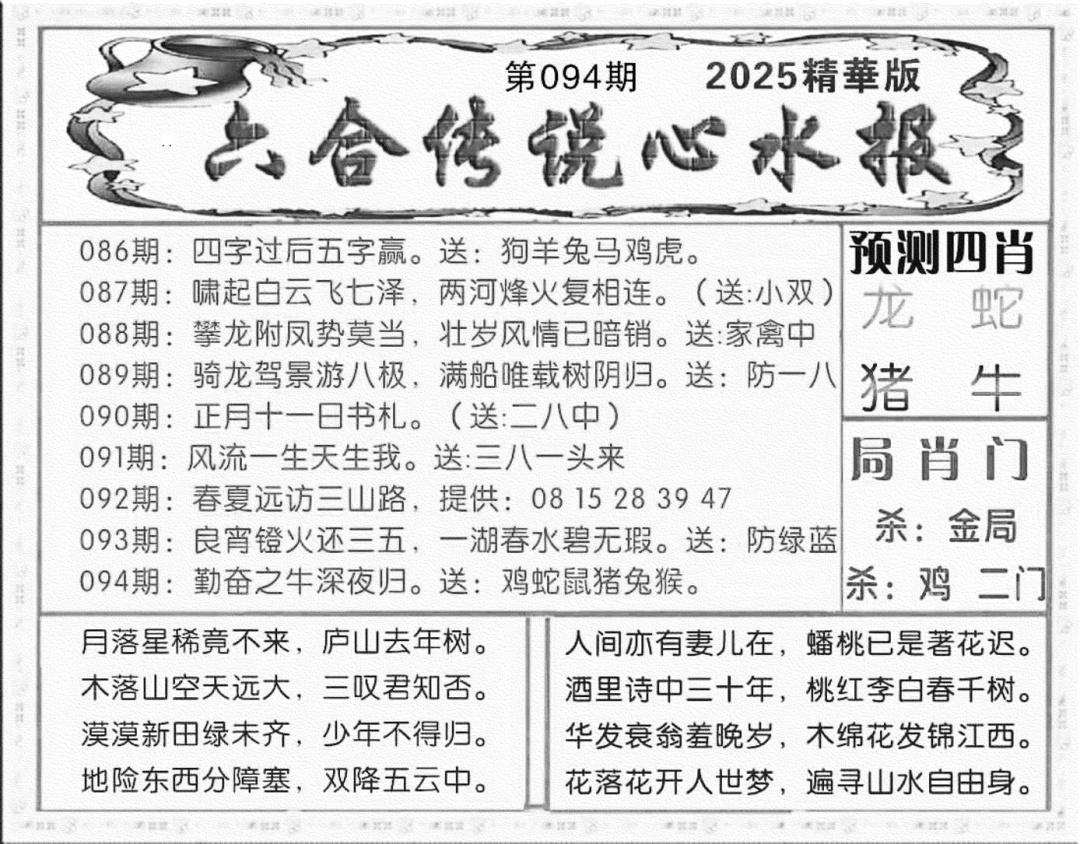 第094期 2025精華版
六合传说心水报
086期：四字过后五字赢。送：狗羊兔马鸡虎。
087期：啸起白云飞七泽，两河烽火复相连。（送:小双）
088期：攀龙附凤势莫当，壮岁风情已暗销。送:家禽中
089期：骑龙驾景游八极，满船唯载树阴归。送：防一八
090期：正月十一日书札。（送:二八中）
091期：风流一生天生我。送:三八一头来
092期：春夏远访三山路，提供：08 15 28 39 47
093期：良宵镫火还三五，一湖春水碧无瑕。送：防绿蓝
094期：勤奋之牛深夜归。送：鸡蛇鼠猪兔猴。
预测四肖
龙 蛇
猪 牛
局肖门
杀：金局
杀：鸡 二门
月落星稀竟不来，庐山去年树。
木落山空天远大，三叹君知否。
漠漠新田绿未齐，少年不得归。
地险东西分障塞，双降五云中。
人间亦有妻儿在，蟠桃已是著花迟。
酒里诗中三十年，桃红李白春千树。
华发衰翁羞晚岁，木绵花发锦江西。
花落花开人世梦，遍寻山水自由身。